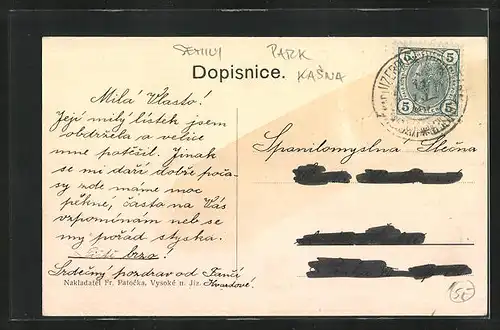 SEMILY PARK
KAŠNA
Dopisnice.
5 5
5 5
Milá Vlasto!
Její milý lístek jsem
obdržela a velice
mne potěšil. Jinak
se mi daří dobře poča-
sy zde máme moc
pěkné, často na Vás
vzpomínám neb se
my pořád styska.
brzo!
Srdečný pozdrav od Fanči
Kvardové.
Nakladatel Fr. Patočka, Vysoké n. Jiz.
Spanilomyslna Slečna
15